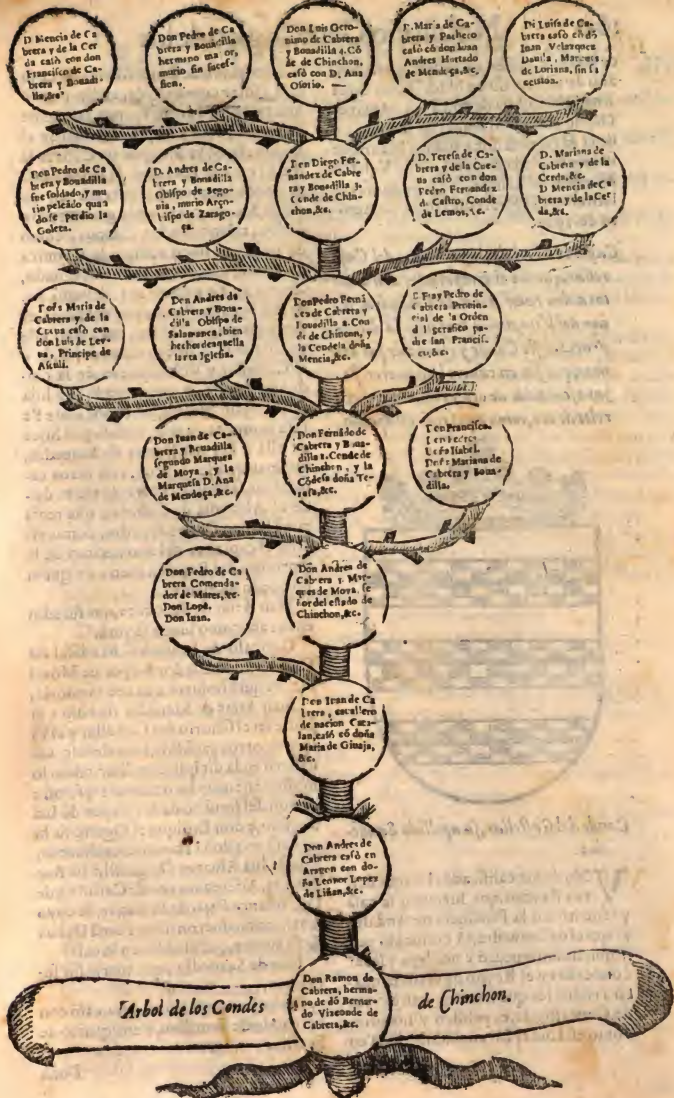 D Mencia de Ca
brera y de la Cer
da casò con don
Francisco de Ca-
brera y Bouadi-
lla,&c.
Don Pedro de Ca
brera y Bouadilla
hermano ma or,
murio sin succes-
sion.
Don Luis Gero-
nimo de Cabrera
y Bonadilla 4. Cõ
de de Chinchon,
casò con D. Ana
Osorio.
D. Maria de Ca-
brera y Pacheco
casò cõ don Iuan
Andres Hurtado
de Mendoça,&c.
Dª Luisa de Ca-
brera casò cõ dõ
Iuan Velazquez
Dauila, Marques
de Loriana, sin su
cession.
Don Pedro de Ca
brera y Bouadilla
fue soldado, y mu
rio peleãdo quan
do se perdio la
Goleta.
D. Andres de Ca-
brera y Bonadilla
Obispo de Sego-
uia, murio Arço-
bispo de Zarago-
ça.
Don Diego Fer-
nandez de Cabre
ra y Bonadilla 3.
Conde de Chin-
chon,&c.
D. Teresa de Ca-
brera y de la Cue-
ua casò con don
Pedro Fernandez
d. Castro, Conde
de Lemos, &c.
D. Mariana de
Cabrera y de la
Cerda,&c.
D Mencia de Ca
brera y de la Cer
da,&c.
Doña Maria de
Cabrera y de la
Cueua casò con
don Luis de Ley-
ua, Principe de
Asculi.
Don Andres de
Cabrera y Boua-
dilla Obispo de
Salamanca, bien
hechor de aquella
santa Iglesia.
Don Pedro Fernã
dez de Cabrera y
Bouadilla 2. Con
de de Chincon, y
la Condesa doña
Mencia,&c.
F. Fray Pedro de
Cabrera Prouin-
cial de la Orden
d l serafico pa-
dre san Francis-
co,&c.
Don Iuan de Ca-
brera y Bouadilla
segundo Marques
de Moya, y la
Marquesa D. Ana
de Mendoça,&c.
Don Fernãdo de
Cabrera y Boua-
dilla 1. Conde de
Chinchon, y la
Cõdesa doña Te-
resa,&c.
Don Francisco.
Don Pedro.
Doña Isabel.
Doña Mariana de
Cabrera y Boua-
dilla.
Don Pedro de Ca
brera Comenda-
dor de Mures,&c.
Don Lope.
Don Iuan.
Don Andres de
Cabrera 1. Mar-
ques de Moya, se
ñor del estado de
Chinchon,&c.
Don Iuan de Ca
brera, cauallero
de nacion Cata-
lan, casò cõ doña
Maria de Ginaja,
&c.
Don Andres de
Cabrera casò en
Aragon con do-
ña Leonor Lopez
de Liñan,&c.
Don Ramon de
Cabrera, herma-
no de dõ Bernar-
do Vizconde de
Cabrera,&c.
Arbol de los Condes de Chinchon.